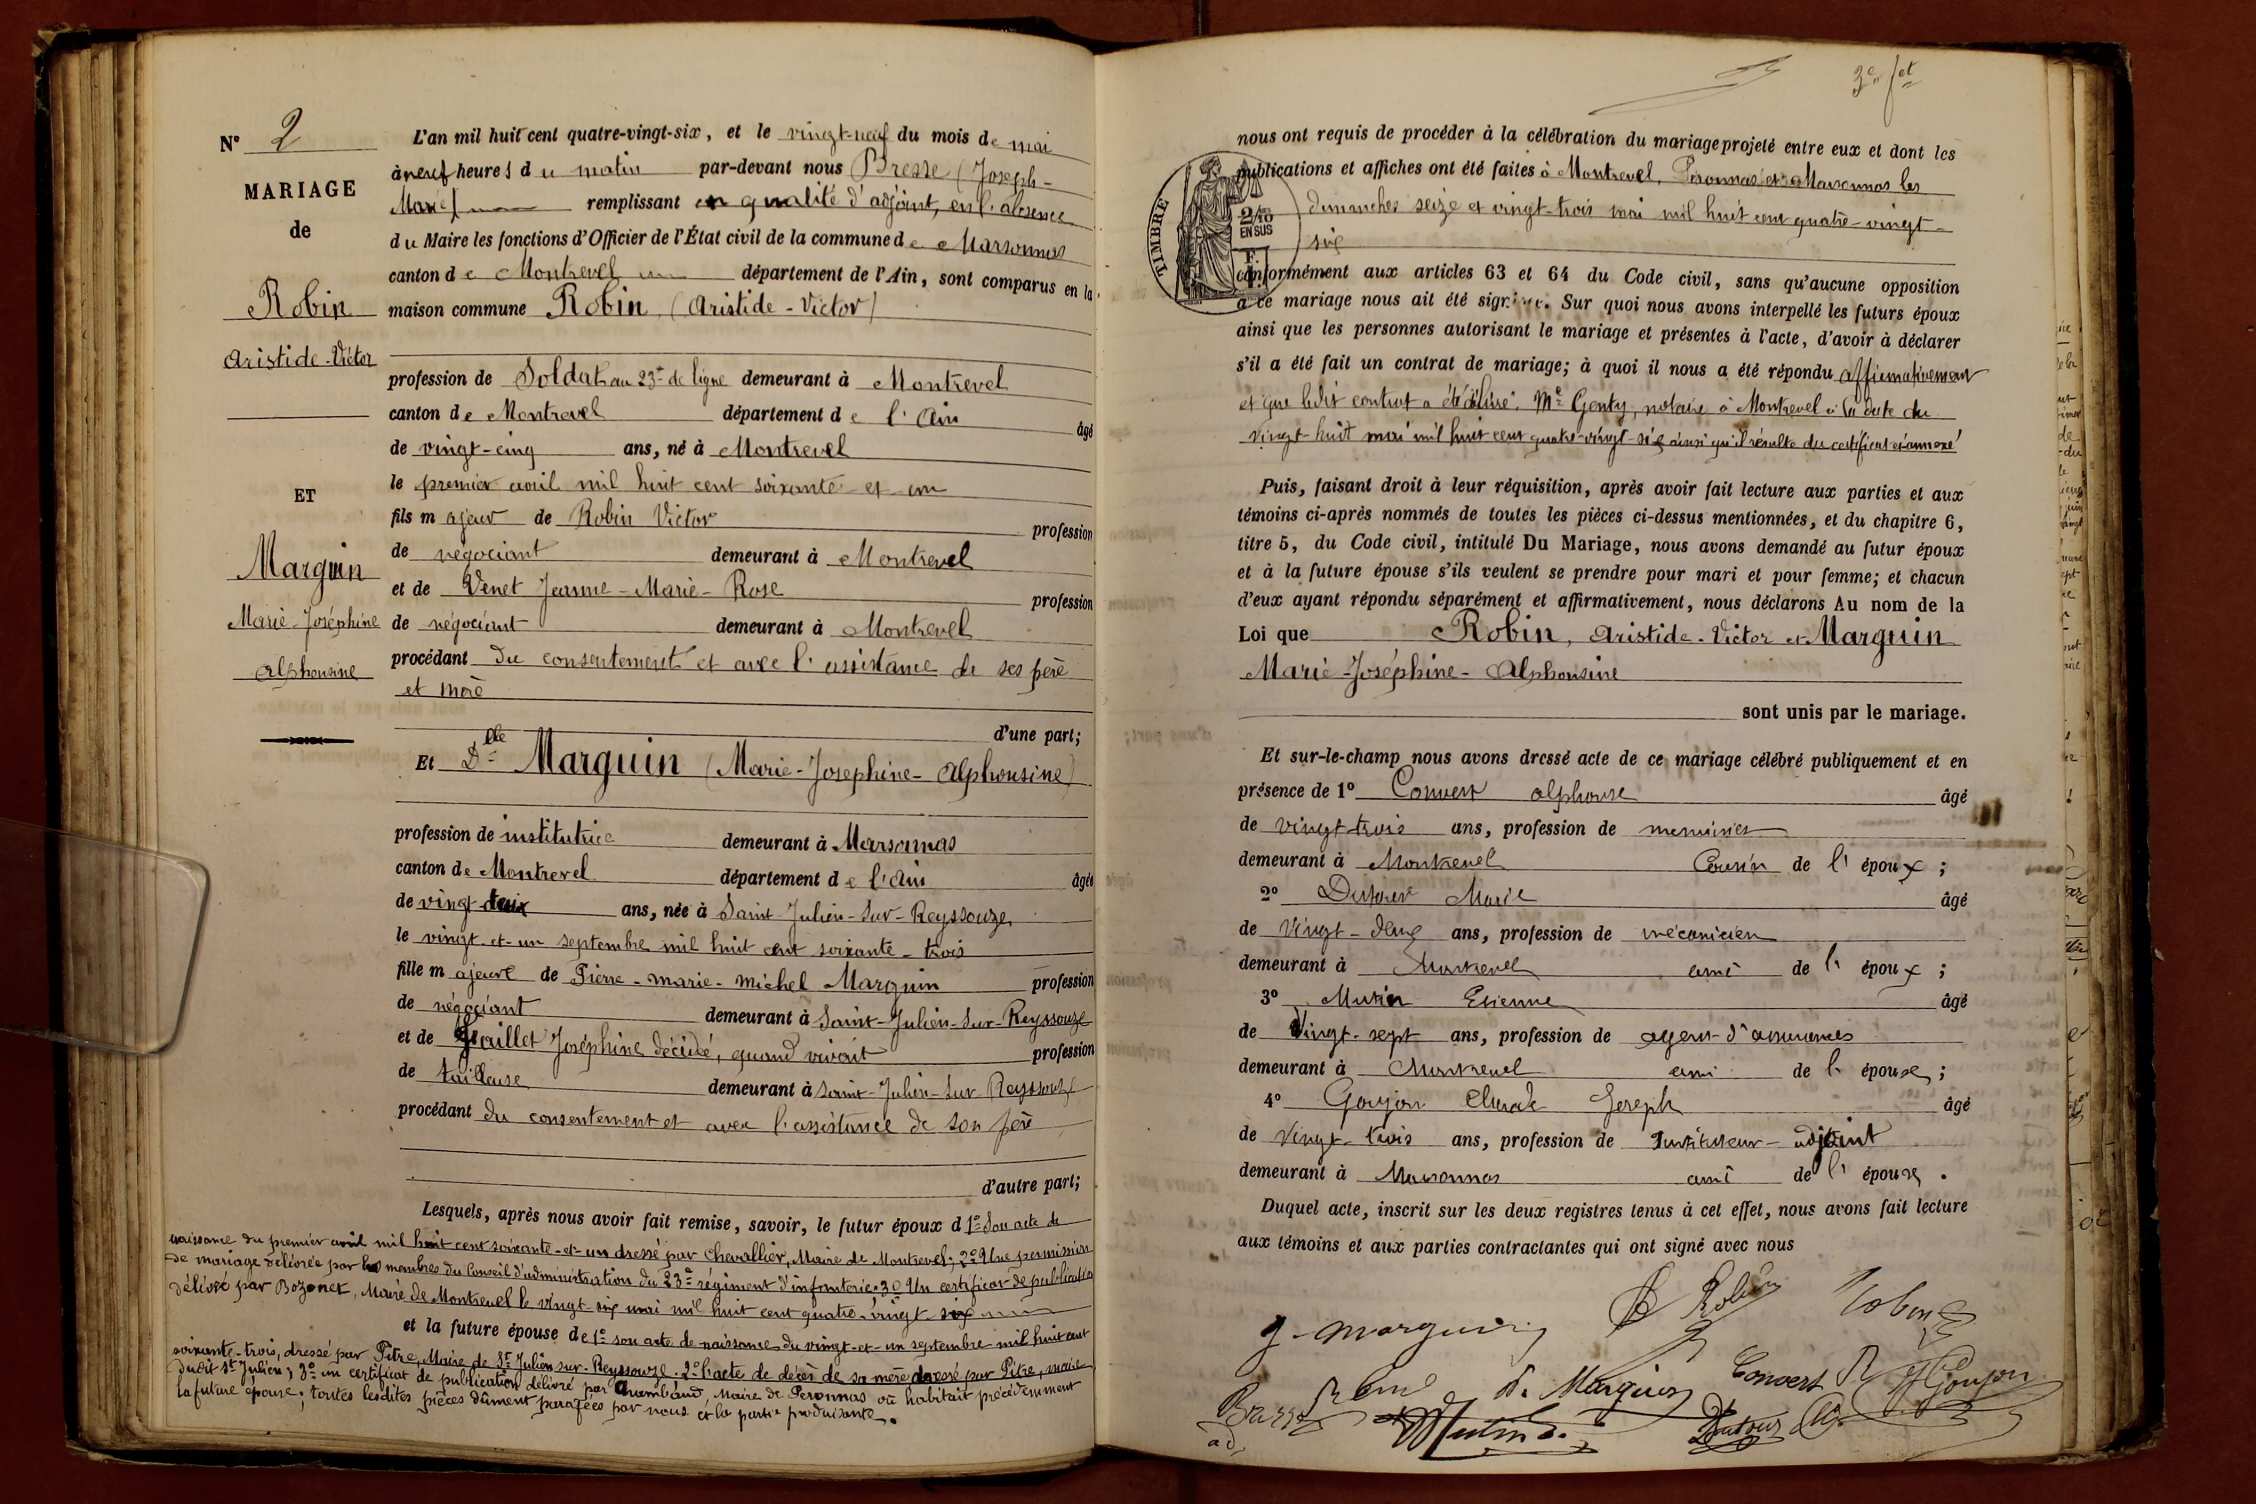 N° 2
MARIAGE
de
Robin
Aristide-Victor
ET
Marguin
Marie-Joséphine
Alphonsine
L'an mil huit cent quatre-vingt-six, et le vingt-neuf du mois de mai
à neuf heures du matin par-devant nous Bresse (Joseph-
Marie) remplissant en qualité d'adjoint, en l'absence
du Maire les fonctions d'Officier de l'État civil de la commune de Marsonnas
canton de Montrevel département de l'Ain, sont comparus en la
maison commune Robin (Aristide-Victor)
profession de Soldat au 23e de ligne demeurant à Montrevel
canton de Montrevel département de l'Ain âgé
de vingt-cinq ans, né à Montrevel
le premier avril mil huit cent soixante et un
fils majeur de Robin Victor profession
de négociant demeurant à Montrevel
et de Venet Jeanne-Marie-Rose profession
de négociant demeurant à Montrevel
procédant du consentement et avec l'assistance de ses père
et mère
d'une part;
Et Dlle Marguin (Marie-Josephine-Alphonsine)
profession de institutrice demeurant à Marsonnas
canton de Montrevel département de l'Ain âgée
de vingt-deux ans, née à Saint-Julien-Sur-Reyssouze
le vingt-et-un septembre mil huit cent soixante-trois
fille majeure de Pierre-marie-michel Marguin profession
de négociant demeurant à Saint-Julien-Sur-Reyssouze
et de Joséphine décédé, quand vivait profession
de tailleuse demeurant à Saint-Julien-Sur-Reyssouze
procédant du consentement et avec l'assistance de son père
d'autre part;
Lesquels, après nous avoir fait remise, savoir, le futur époux d 1° Son acte de
naissance du premier avril mil huit cent soixante-et-un dressé par Chevallier, Maire de Montrevel; 2° Une permission
de mariage délivrée par les membres du Conseil d'administration du 23e régiment d'infanterie; 3° Un certificat de publication
délivré par Bozonet, Maire de Montrevel le vingt-six mai mil huit cent quatre-vingt-six
et la future épouse de 1° son acte de naissance du vingt-et-un septembre mil huit cent
soixante-trois, dressé par Pitre, Maire de St Julien sur-Reyssouze. 2° l'acte de décès de sa mère dressé par Pitre, maire
dudit St Julien; 3° un certificat de publication délivré par Maire de Péronnas où habitait précédemment
la future épouse; toutes lesdites pièces dûment parafées par nous et la partie produisante.
3e fet
nous ont requis de procéder à la célébration du mariage projeté entre eux et dont les
publications et affiches ont été faites à Montrevel, Péronnas et à Marsonnas les
dimanches seize et vingt-trois mai mil huit cent quatre-vingt-
six
TIMBRE
2/10
EN SUS
conformément aux articles 63 et 64 du Code civil, sans qu'aucune opposition
à ce mariage nous ait été signifiée. Sur quoi nous avons interpellé les futurs époux
ainsi que les personnes autorisant le mariage et présentes à l'acte, d'avoir à déclarer
s'il a été fait un contrat de mariage; à quoi il nous a été répondu affirmativement
et que ledit contrat a été Me Genty, notaire à Montrevel à la date du
vingt-huit mai mil huit cent quatre-vingt-six ainsi qu'il résulte du certificat ci-annexé
Puis, faisant droit à leur réquisition, après avoir fait lecture aux parties et aux
témoins ci-après nommés de toutes les pièces ci-dessus mentionnées, et du chapitre 6,
titre 5, du Code civil, intitulé Du Mariage, nous avons demandé au futur époux
et à la future épouse s'ils veulent se prendre pour mari et pour femme; et chacun
d'eux ayant répondu séparément et affirmativement, nous déclarons Au nom de la
Loi que Robin, Aristide-Victor et Marguin
Marie-Joséphine-Alphonsine
sont unis par le mariage.
Et sur-le-champ nous avons dressé acte de ce mariage célébré publiquement et en
présence de 1° Convert Alphonse âgé
de vingt trois ans, profession de menuisier
demeurant à Montrevel Cousin de l'époux;
2° Dufour Marie âgé
de Vingt-deux ans, profession de mécanicien
demeurant à Montrevel ami de l'époux;
3° Mutin Etienne âgé
de Vingt-sept ans, profession de agent d'assurances
demeurant à Montrevel ami de l'épouse;
4° Goujon Claude Joseph âgé
de Vingt-trois ans, profession de Instituteur-adjoint
demeurant à Marsonnas ami de l'épouse.
Duquel acte, inscrit sur les deux registres tenus à cet effet, nous avons fait lecture
aux témoins et aux parties contractantes qui ont signé avec nous
Robin Robin
J. Marguin
Convert Goujon
A. Marguin
Bresse
ad
Mutin E. Dufour